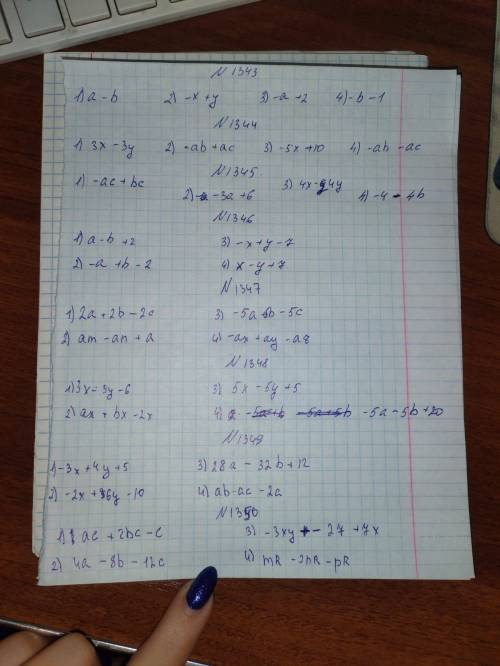 N 1343
1) a - b 2) -x + y 3) -a + 2 4) -b - 1
N 1344
1) 3x - 3y 2) -ab + ac 3) -5x + 10 4) -ab - ac
N 1345
1) -ac + bc 2) -3a + 6 3) 4x - 4y 4) -4 - 4b
N 1346
1) a - b + 2 3) -x + y - 7
2) -a + b - 2 4) x - y + 7
N 1347
1) 2a + 2b - 2c 3) -5a 5b - 5c
2) am - an + a 4) -ax + ay - a8
N 1348
1) 3x - 3y - 6 3) 5x - 5y + 5
2) ax + bx - 2x 4) -5a - 5b + 20
N 1349
1) -3x + 4y + 5 3) 28a - 32b + 12
2) -2x + 6y - 10 4) ab - ac - 2a
N 1350
1) ac + 2bc - c 3) -3xy - 27 + 7x
2) 4a - 8b - 12c 4) mk - 2nk - pk